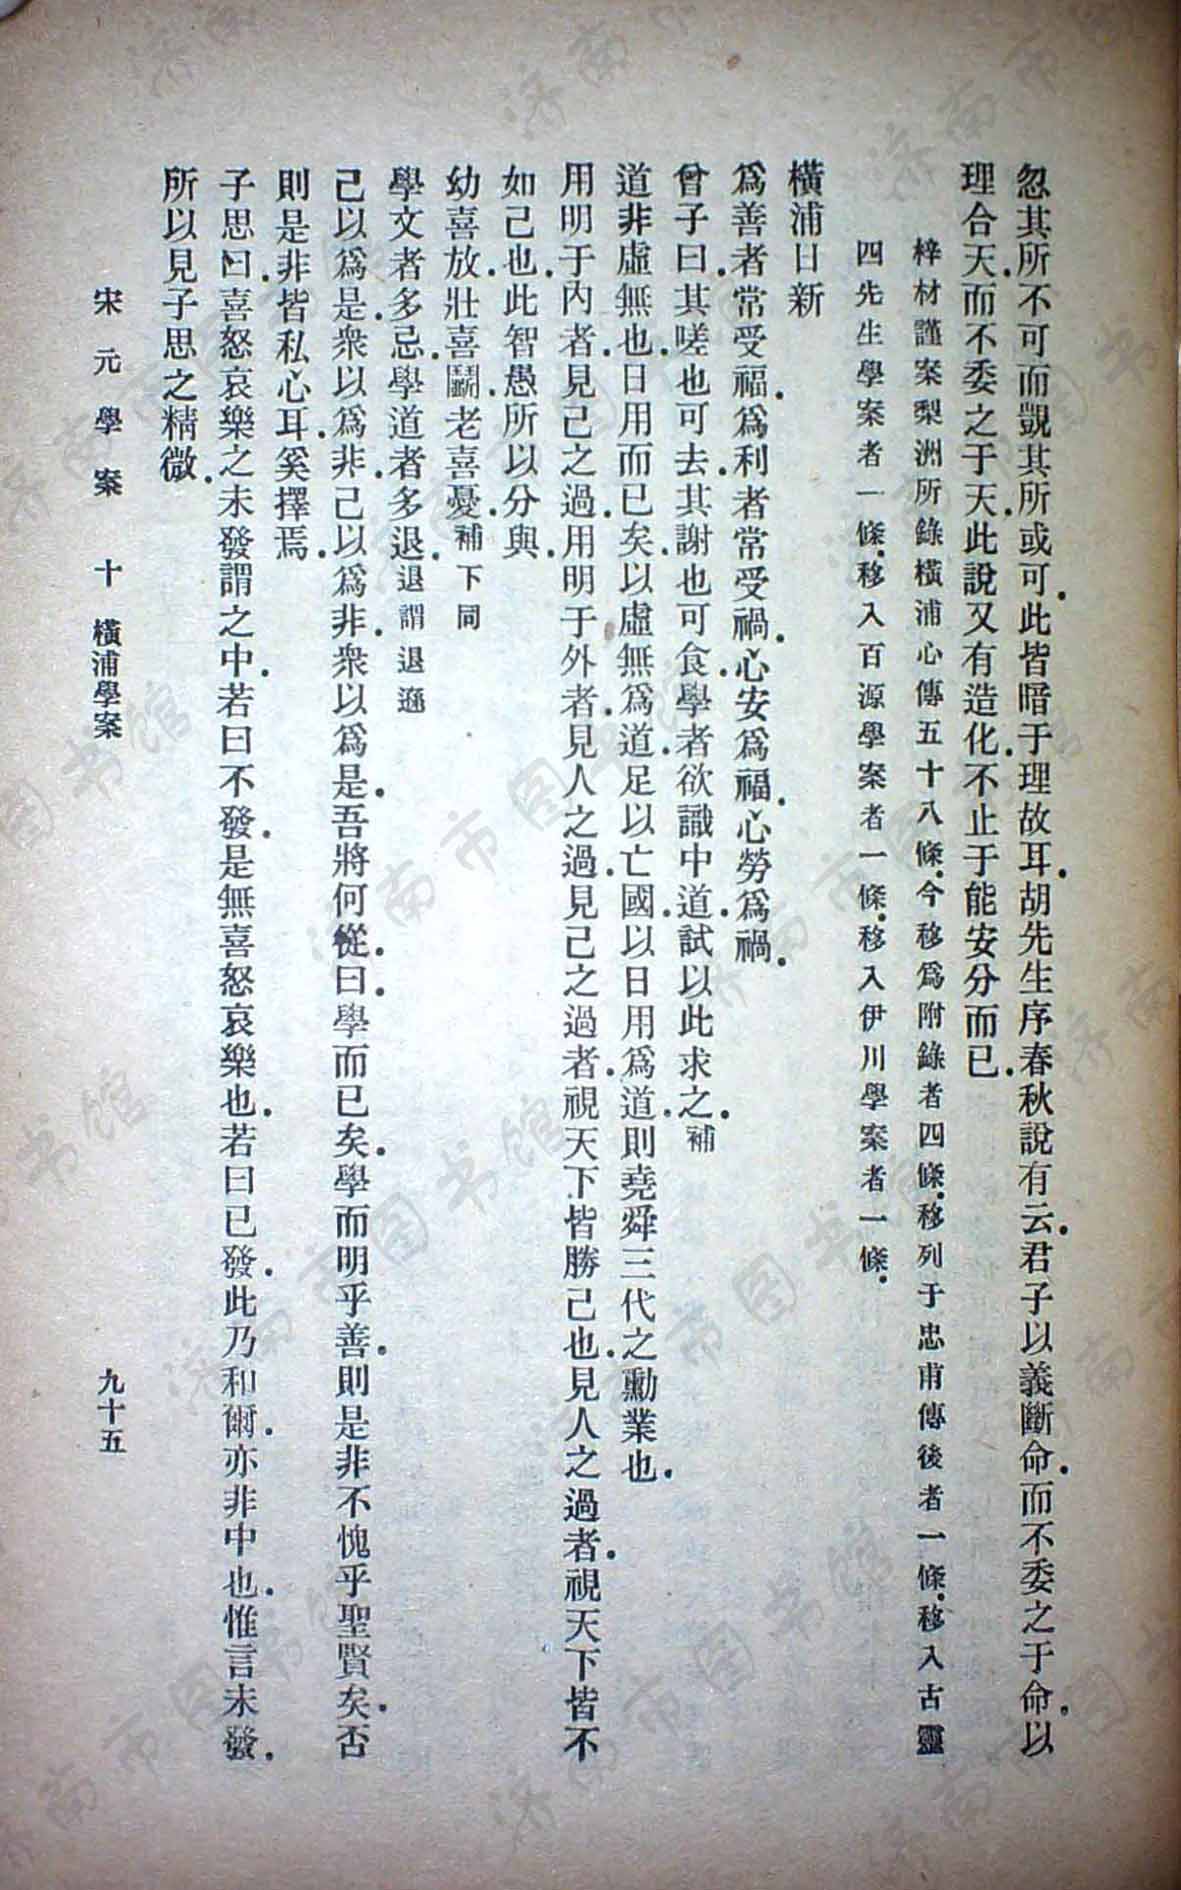 忽其所不可而覬其所或可.此皆暗于理故耳.胡先生序春秋說有云.君子以義斷命.而不委之于命.以
理合天.而不委之于天.此說又有造化.不止于能安分而已.
梓材謹案梨洲所錄橫浦心傳五十八條.今移爲附錄者四條.移列于忠甫傳後者一條.移入古靈
四先生學案者一條.移入百源學案者一條.移入伊川學案者一條.
橫浦日新
爲善者常受福.爲利者常受禍.心安爲福.心勞爲禍.
曾子曰.其嗟也可去.其謝也可食.學者欲識中道.試以此求之.補
道非虛無也.日用而已矣.以虛無爲道.足以亡國.以日用爲道.則堯舜三代之勳業也.
用明于內者.見己之過.用明于外者.見人之過.見己之過者.視天下皆勝己也.見人之過者.視天下皆不
如己也.此智愚所以分與.
幼喜放.壯喜鬭.老喜憂.補下同
學文者多忌.學道者多退.退謂退遜
己以爲是.衆以爲非.己以爲非.衆以爲是.吾將何從.曰.學而已矣.學而明乎善.則是非不愧乎聖賢矣.否
則是非皆私心耳.奚擇焉.
子思曰.喜怒哀樂之未發謂之中.若曰不發.是無喜怒哀樂也.若曰已發.此乃和爾.亦非中也.惟言未發.
所以見子思之精微.
宋元學案 十 橫浦學案 九十五
济南市图书馆